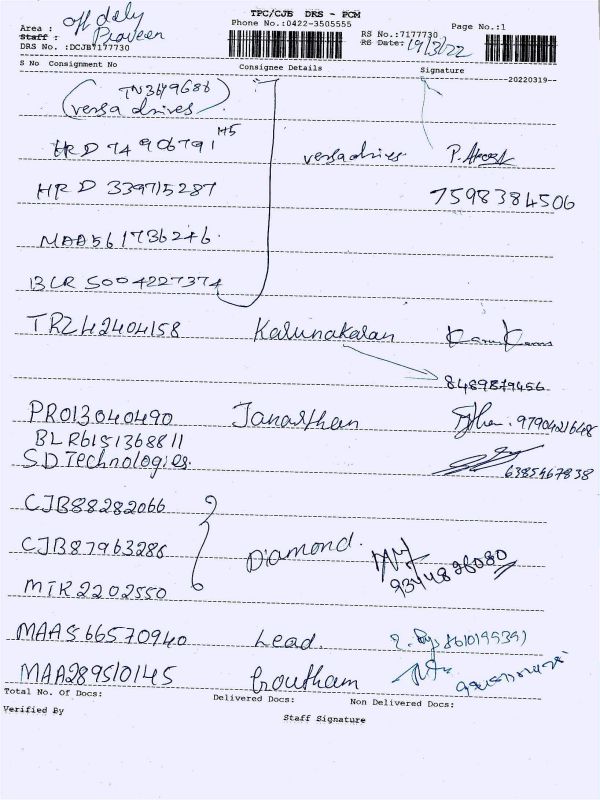 TPC/CJB DRS - PCM
Area : off daly
Phone No.:0422-3505555
Page No.:1
Staff : Praveen
RS No.:7177730
DRS No. :DCJB7177730
RS Date: 19/3/22
S No Consignment No Consignee Details Signature
20220319
TN3649686
(versa drives)
HRD 74906791 versadrives
HRD 339715287 7598384506
MAA561736246
BLR 5004227374
TRZ42404158 Karunakaran
8489879456
PRO13040490 Janarthan 9790421648
BLR6151368811
S.D Technologies. 6385467838
CJB88282066
CJB87963286 Diamond.
MTR2202550
MAA566570940 Lead.
MAA289510145 Goutham
Total No. Of Docs: Delivered Docs: Non Delivered Docs:
Verified By Staff Signature